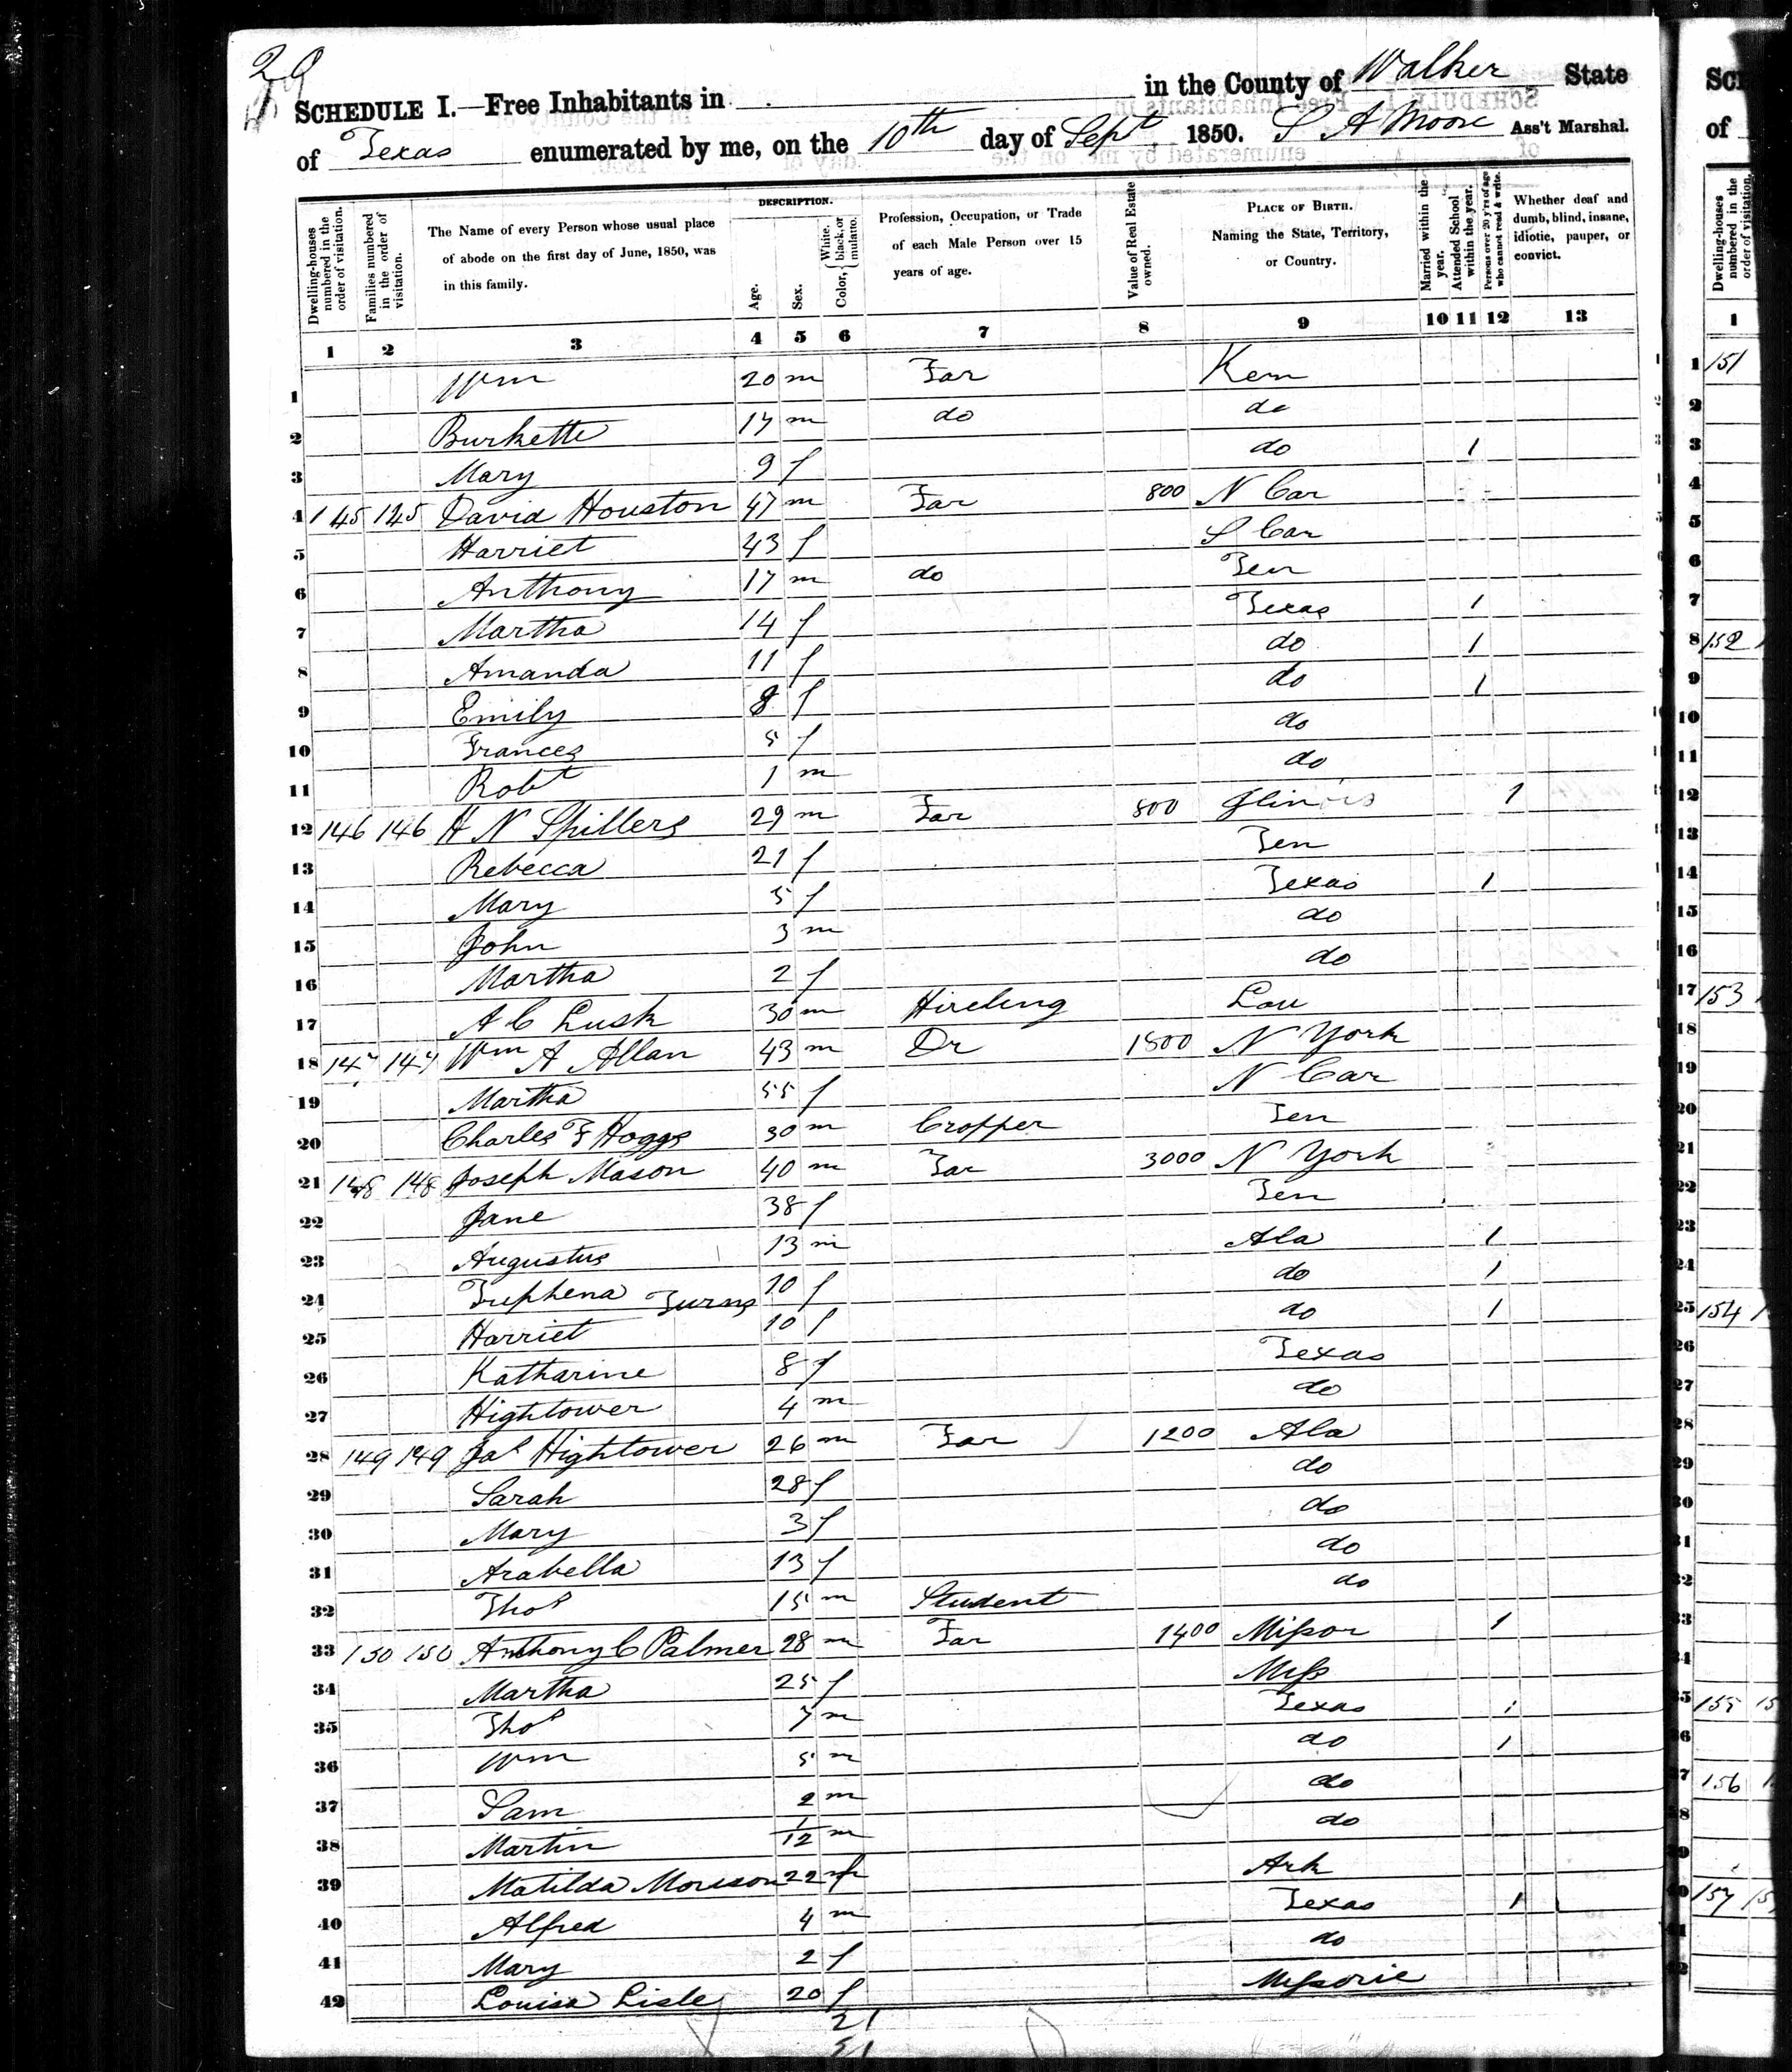 29
SCHEDULE I.—Free Inhabitants in in the County of Walker State
of Texas enumerated by me, on the 10th day of Sept 1850. S A Moore Ass't Marshal.
Dwelling-houses numbered in the order of visitation.
Families numbered in the order of visitation.
The Name of every Person whose usual place of abode on the first day of June, 1850, was in this family.
DESCRIPTION.
Age.
Sex.
Color, White, black, or mulatto.
Profession, Occupation, or Trade of each Male Person over 15 years of age.
Value of Real Estate owned.
PLACE OF BIRTH. Naming the State, Territory, or Country.
Married within the year.
Attended School within the year.
Persons over 20 y'rs of age who cannot read & write.
Whether deaf and dumb, blind, insane, idiotic, pauper, or convict.
1 2 3 4 5 6 7 8 9 10 11 12 13
1 Wm 20 m Far Ken
2 Burkette 17 m do do
3 Mary 9 f do 1
4 145 145 David Houston 47 m Far 800 N Car
5 Harriet 43 f S Car
6 Anthony 17 m do Ten
7 Martha 14 f Texas 1
8 Amanda 11 f do 1
9 Emily 8 f do 1
10 Frances 5 f do
11 Robt 1 m do
12 146 146 H N Spillers 29 m Far 800 Ilinois 1
13 Rebecca 21 f Ten
14 Mary 5 f Texas 1
15 John 3 m do
16 Martha 2 f do
17 A C Lusk 30 m Hireling Lou
18 147 147 Wm A Allan 43 m Dr 1500 N York
19 Martha 55 f N Car
20 Charles F Hoggs 30 m Cropper Ten
21 148 148 Joseph Mason 40 m Far 3000 N York
22 Jane 38 f Ten
23 Augustus 13 m Ala 1
24 Tuphena Turns 10 f do 1
25 Harriet 10 f do 1
26 Katharine 8 f Texas
27 Hightower 4 m do
28 149 149 Jas Hightower 26 m Far 1200 Ala
29 Sarah 28 f do
30 Mary 3 f do
31 Arabella 13 f do
32 Thos 15 m Student do
33 150 150 Anthony C Palmer 28 m Far 1400 Missor 1
34 Martha 25 f Miss
35 Thos 7 m Texas 1
36 Wm 5 m do 1
37 Sam 2 m do
38 Martin 1/12 m do
39 Matilda Morison 22 f Ark
40 Alfred 4 m Texas 1
41 Mary 2 f do
42 Louisa Lisle 20 f Missorie
21